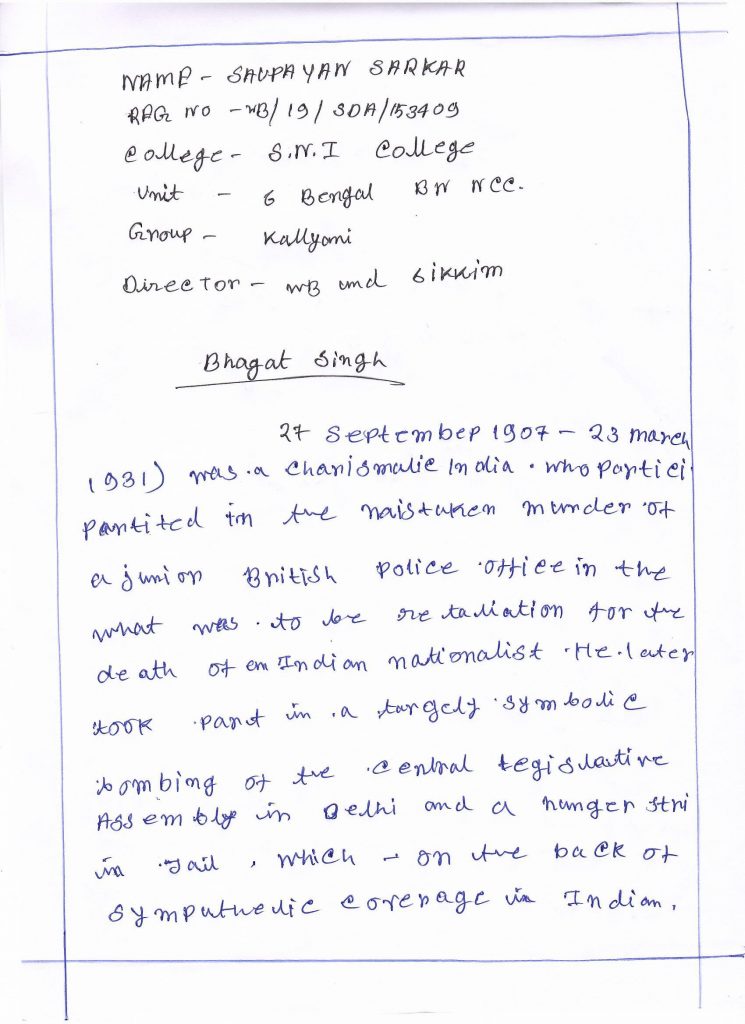 NAME - SAUPAYAN SARKAR
REG NO - WB/19/SDA/153409
College - S.N.I College
Unit - 6 Bengal BN NCC.
Group - Kallyani
Director - WB and Sikkim
Bhagat Singh
27 September 1907 - 23 march
1931) was a charismatic India. who partici
pantited in the maistaken murder of
a junion British Police office in the
what was to be retaliation for the
death of an Indian nationalist. He later
took part in a largely symbolic
bombing of the central Legislative
Assembly in Delhi and a hunger stri
in Jail, which - on the back of
sympathetic coverage in Indian,